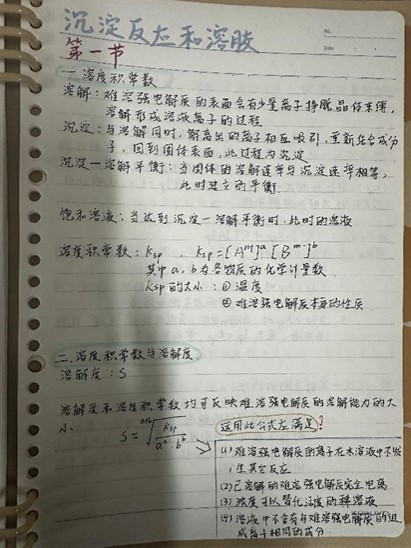 沉淀反应和溶胶
No.
Date
第一节
一.溶度积常数
溶解:难溶强电解质的表面会有少量离子挣脱晶体束缚,
溶解形成溶液离子的过程
沉淀:与溶解同时,解离出的离子相互吸引,重新结合成分
子,回到固体表面,此过程为沉淀
沉淀一溶解平衡:当固体的溶解速率与沉淀速率相等,
此时建立的平衡
饱和溶液:当达到沉淀一溶解平衡时,此时的溶液
溶度积常数:Ksp , Ksp=[Aᵐ]ᵃ[Bᵐ⁻]ᵇ
其中a,b为各物质的化学计量数
Ksp的大小:①温度
②难溶强电解质本身的性质
二.溶度积常数与溶解度
溶解度:S
溶解度和溶度积常数均可反映难溶强电解质的溶解能力的大
小
S=ᵃ⁺ᵇ√(Ksp/aᵃ·bᵇ)
运用此公式应满足?
(1)难溶强电解质的离子在水溶液中不发
生其它反应
(2)已溶解的难溶强电解质完全电离
(3)浓度可以替代活度的稀溶液
(4)溶液中不含有与难溶强电解质的组
成离子相同的成分